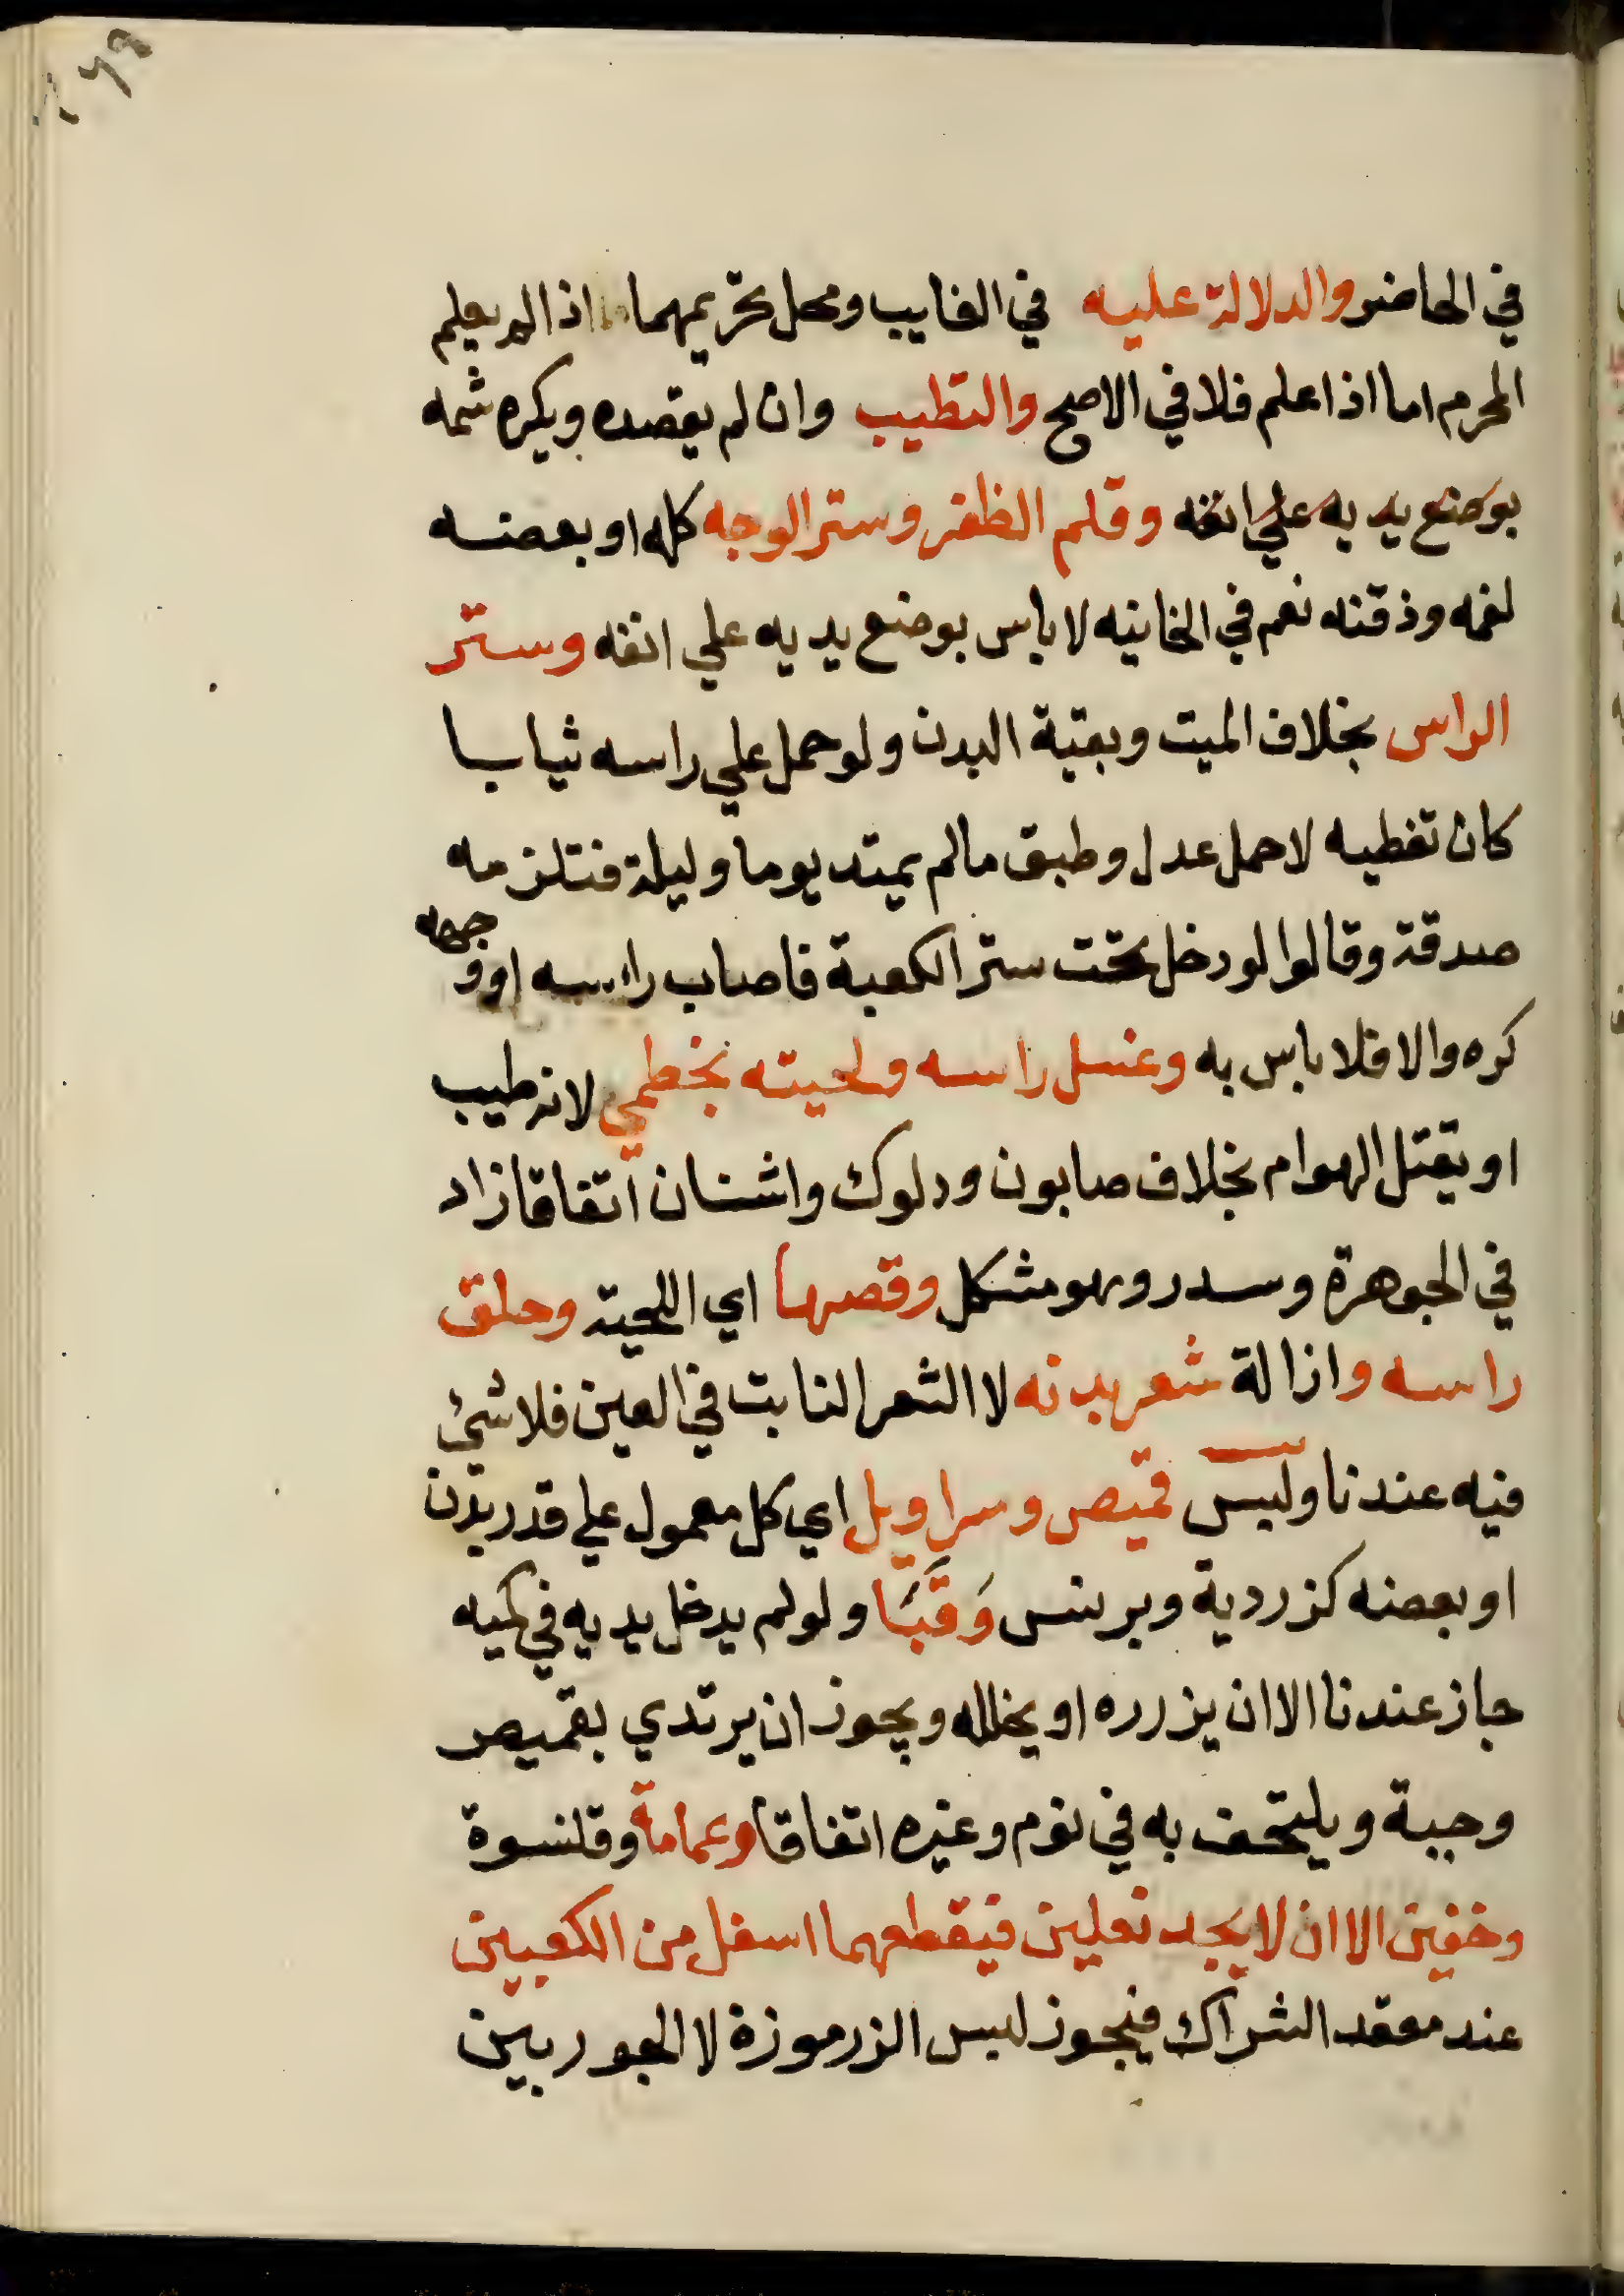 في الحاضر والدلالة عليه في الغايب ومحل تحريمهما اذا لم يعلم
المحرم اما اذا علم فلا في الاصح والتطيب وان لم يقصده ويكره شمه
بوضع يديه علي انفه وقلم الظفر وستر الوجه كله او بعضه
لفمه وذقنه نعم في الخانيه لا باس بوضع يديه علي انفه وستر
الراس بخلاف الميت وبقية البدن ولو حمل علي راسه ثيابا
كان تغطيه لا حمل عدل وطبق مالم يمتد يوما وليلة فتلزمه
صدقة وقالوا لو دخل تحت ستر الكعبة فاصاب راسه او وجهه
كره والا فلا باس به وغسل راسه ولحيته بخطمي لانه طيب
او يقتل الهوام بخلاف صابون ودلوك واشنان اتفاقا زاد
في الجوهرة وسدر وهو مشكل وقصها اي اللحية وحلق
راسه وازالة شعر بدنه لا الشعر النابت في العين فلا شئ
فيه عندنا ولبس قميص وسراويل اي كل معمول علي قدر بدن
او بعضه كزردية وبرنس وَقَبَا ولو لم يدخل يديه في كميه
جاز عندنا الا ان يزرره او يخلله ويجوز ان يرتدي بقميص
وجبة ويلتحف به في نوم وغيره اتفاقا وعمامة وقلنسوة
وخفين الا ان لا يجد نعلين فيقطعهما اسفل من الكعبين
عند معقد الشراك فيجوز لبس الزرموزة لا الجوربين